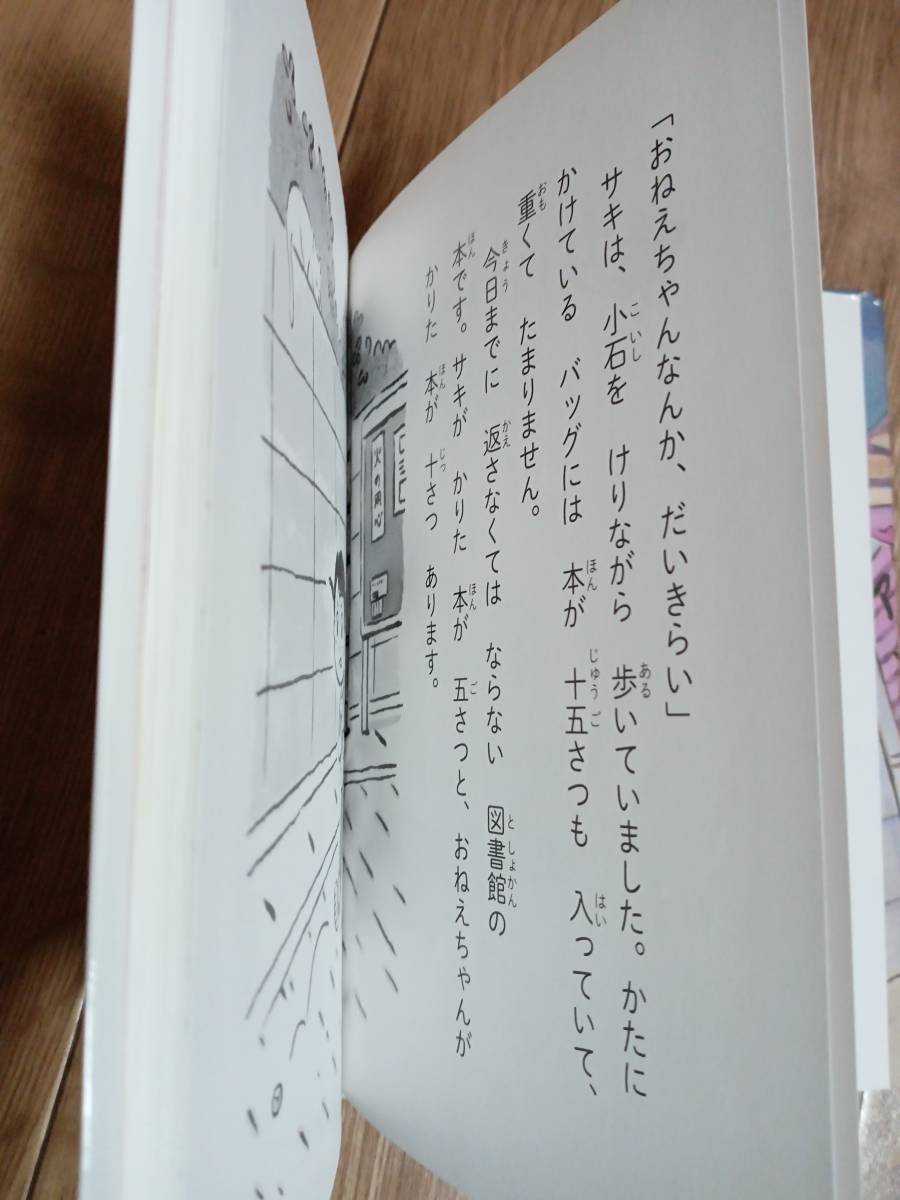 「おねえちゃんなんか、だいきらい」
サキは、小石を けりながら 歩いていました。かたに
かけている バッグには 本が 十五さつも 入っていて、
重くて たまりません。
今日までに 返さなくては ならない 図書館の
本です。サキが かりた 本が 五さつと、おねえちゃんが
かりた 本が 十さつ あります。
火の用心